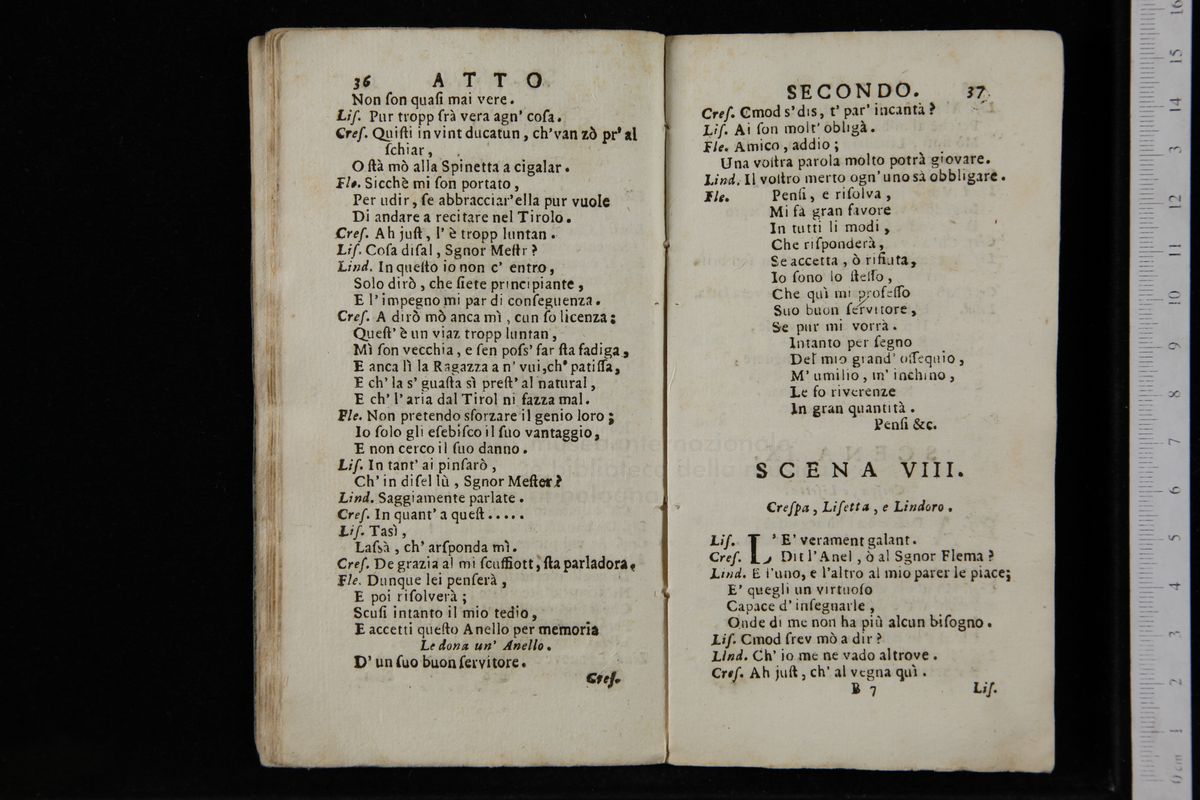 36 ATTO
Non ſon quaſi mai vere.
Liſ. Pur tropp ſrà vera agn' coſa.
Creſ. Quiſti in vint ducatun, ch'van zò pr' al
ſchiar,
O ſtà mò alla Spinetta a cigalar.
Fle. Sicchè mi ſon portato,
Per udir, ſe abbracciar'ella pur vuole
Di andare a recitare nel Tirolo.
Creſ. Ah juſt, l' è tropp luntan.
Liſ. Coſa diſal, Sgnor Meſtr?
Lind. In queſto io non c' entro,
Solo dirò, che ſiete principiante,
E l' impegno mi par di conſeguenza.
Creſ. A dirò mò anca mì, cun ſo licenza;
Queſt' è un viaz tropp luntan,
Mì ſon vecchia, e ſen poſs' far ſta fadiga,
E anca lì la Ragazza a n' vui, ch' patiſſa,
E ch' la s' guaſta sì preſt' al natural,
E ch' l' aria dal Tirol ni fazza mal.
Fle. Non pretendo sforzare il genio loro;
Io ſolo gli eſebiſco il ſuo vantaggio,
E non cerco il ſuo danno.
Liſ. In tant' ai pinſarò,
Ch' in diſel lù, Sgnor Meſter?
Lind. Saggiamente parlate.
Creſ. In quant' a queſt.....
Liſ. Tasì,
Laſsà, ch' arſponda mì.
Creſ. De grazia al mi ſcuffiott, ſta parladora.
Fle. Dunque lei penſerà,
E poi riſolverà;
Scuſi intanto il mio tedio,
E accetti queſto Anello per memoria
Le dona un' Anello.
D' un ſuo buon ſervitore.
Creſ.
SECONDO. 37
Creſ. Cmod s' dis, t' par' incantà?
Liſ. Ai ſon molt' obligà.
Fle. Amico, addio;
Una voſtra parola molto potrà giovare.
Lind. Il voſtro merto ogn' uno sà obbligare.
Fle. Penſi, e riſolva,
Mi fà gran favore
In tutti li modi,
Che riſponderà,
Se accetta, ò rifiuta,
Io ſono lo ſteſſo,
Che quì mi profeſſo
Suo buon ſervitore,
Se pur mi vorrà.
Intanto per ſegno
Del mio grand' oſſequio,
M' umilio, m' inchino,
Le fo riverenze
In gran quantità.
Penſi &c.
SCENA VIII.
Creſpa, Liſetta, e Lindoro.
Liſ. L' E' verament galant.
Creſ. Dit l' Anel, ò al Sgnor Flema?
Lind. E l'uno, e l'altro al mio parer le piace;
E' quegli un virtuoſo
Capace d' inſegnarle,
Onde di me non ha più alcun biſogno.
Liſ. Cmod ſrev mò a dir?
Lind. Ch' io me ne vado altrove.
Creſ. Ah juſt, ch' al vegna quì.
B 7 Liſ.